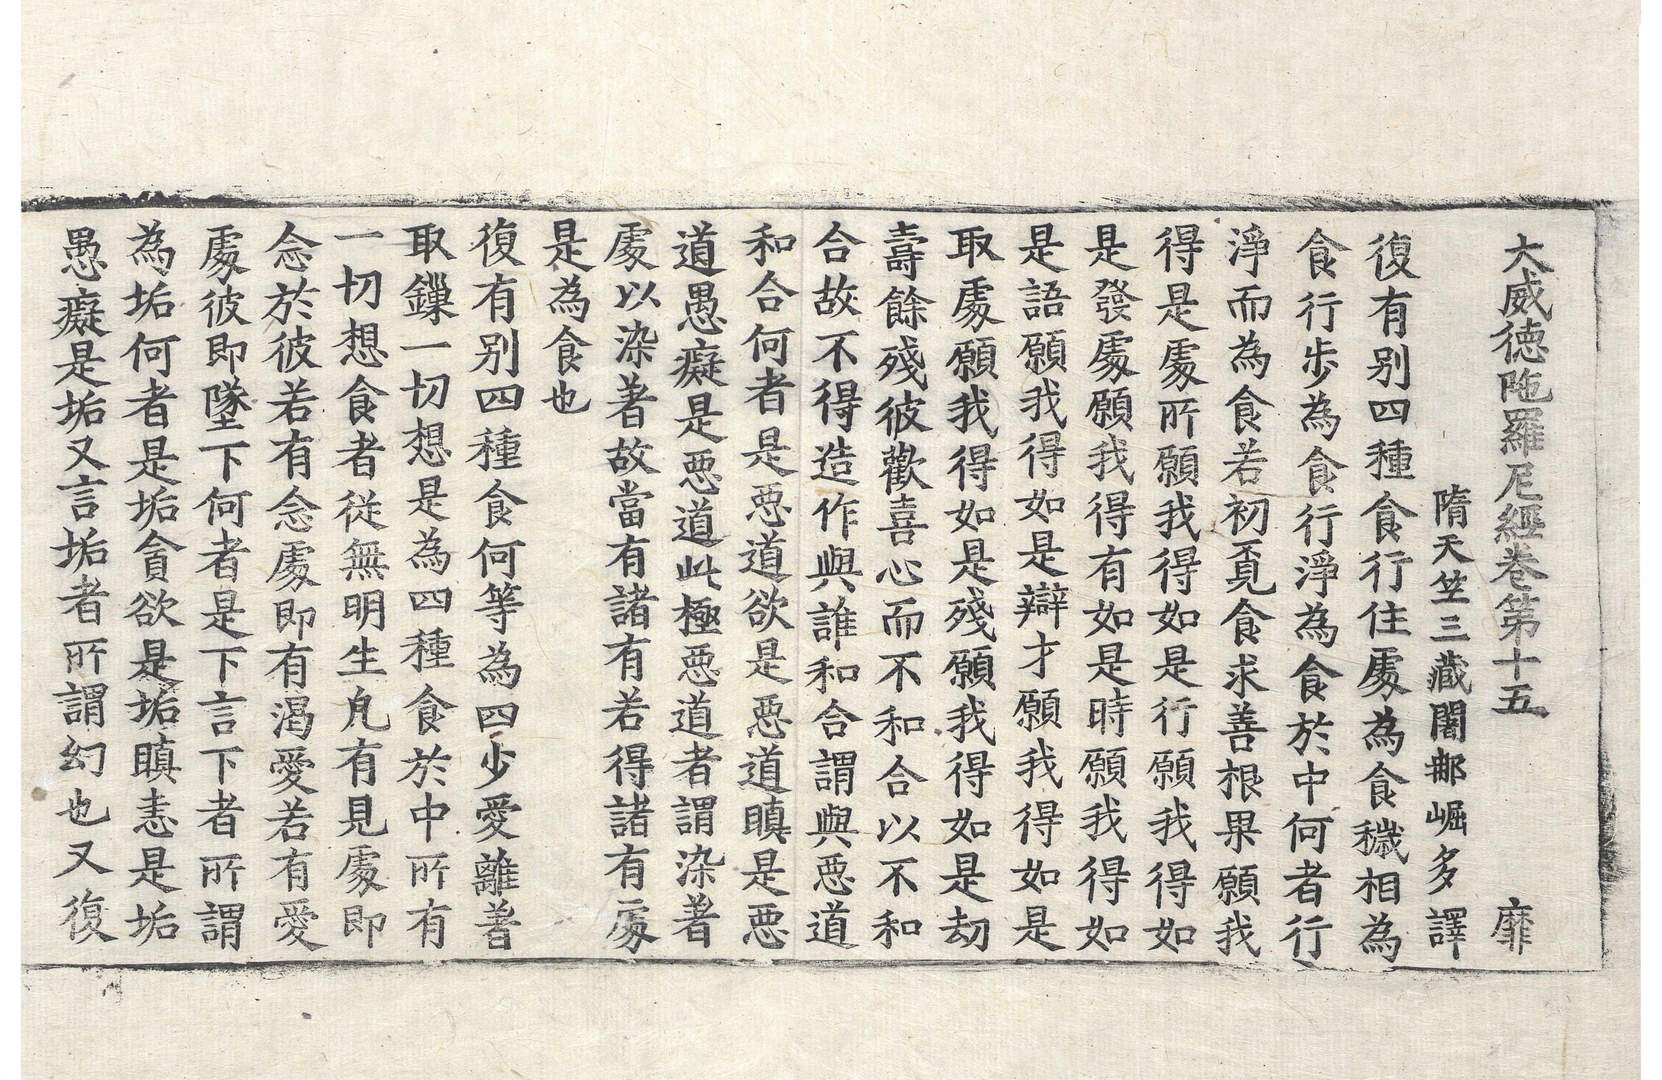 大威德陁羅尼經卷第十五 靡
隋天竺三藏闍那崛多譯
復有別四種食行住處為食穢相為
食行步為食行淨為食於中何者行
淨而為食若初覓食求善根果願我
得是處所願我得如是行願我得如
是發處願我得有如是時願我得如
是語願我得如是辯才願我得如是
取處願我得如是殘願我得如是劫
壽餘殘彼歡喜心而不和合以不和
合故不得造作與誰和合謂與惡道
和合何者是惡道欲是惡道瞋是惡
道愚癡是惡道此極惡道者謂染著
處以染著故當有諸有若得諸有處
是為食也
復有別四種食何等為四少愛離著
取鏁一切想是為四種食於中所有
一切想食者從無明生凡有見處即
念於彼若有念處即有渴愛若有愛
處彼即墜下何者是下言下者所謂
為垢何者是垢貪欲是垢瞋恚是垢
愚癡是垢又言垢者所謂幻也又復